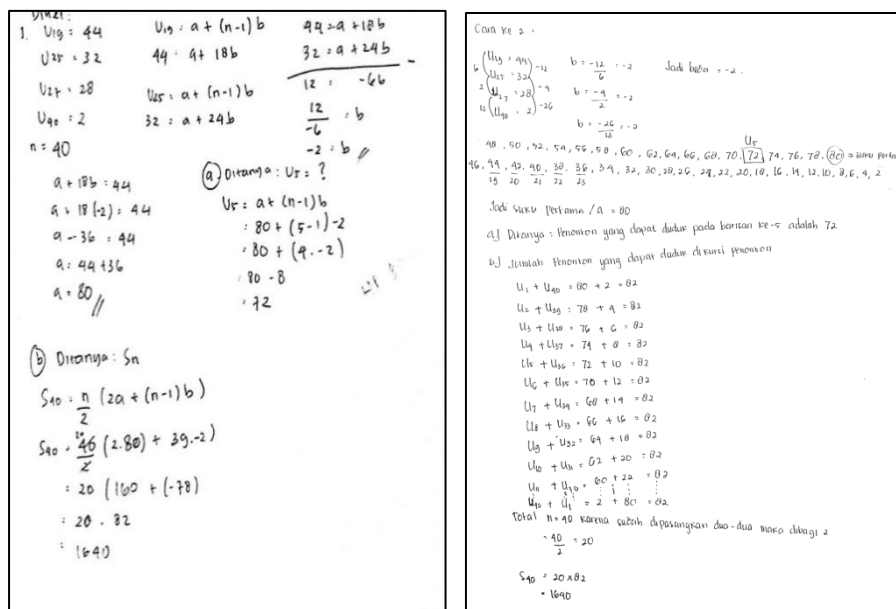 1. U19 = 44
U25 = 32
U27 = 28
U40 = 2
n = 40
U19 = a + (n-1) b
44 = a + 18b
U25 = a + (n-1) b
32 = a + 24b
44 = a + 18b
32 = a + 24b
12 = -6b
12/-6 = b
-2 = b //
a + 18b = 44
a + 18 (-2) = 44
a - 36 = 44
a = 44 + 36
a = 80 //
(a) Ditanya : U5 = ?
U5 = a + (n-1) b
= 80 + (5-1) -2
= 80 + (4 . -2)
= 80 - 8
= 72
(b) Ditanya : Sn
S40 = n/2 (2a + (n-1) b)
S40 = 40/2 (2.80) + 39.-2)
= 20 (160 + (-78)
= 20 . 82
= 1640
Cara ke 2 .
6 (U19 = 44) -12
2 (U25 = 32
U27 = 28) -4
13 (U40 = 2) -26
b = -12/6 = -2
b = -4/2 = -2
b = -26/13 = -2
Jadi beda = -2.
U5
48, 50, 52, 54, 56, 58, 60, 62, 64, 66, 68, 70, 72, 74, 76, 78, 80 = suku pertama
46, 44, 42, 40, 38, 36, 34, 32, 30, 28, 26, 24, 22, 20, 18, 16, 14, 12, 10, 8, 6, 4, 2
19 20 21 22 23
Jadi suku pertama / a = 80
a) Ditanya : Penonton yang dapat duduk pada barisan ke-5 adalah 72
b) Jumlah Penonton yang dapat duduk di kursi penonton
U1 + U40 = 80 + 2 = 82
U2 + U39 = 78 + 4 = 82
U3 + U38 = 76 + 6 = 82
U4 + U37 = 74 + 8 = 82
U5 + U36 = 72 + 10 = 82
U6 + U35 = 70 + 12 = 82
U7 + U34 = 68 + 14 = 82
U8 + U33 = 66 + 16 = 82
U9 + U32 = 64 + 18 = 82
U10 + U11 = 62 + 20 = 82
U11 + U30 = 60 + 22 = 82
U40 + U1 = 2 + 80 = 82
Total n = 40 karena sudah dipasangkan dua-dua maka dibagi 2
= 40/2 = 20
S40 = 20 x 82
= 1640